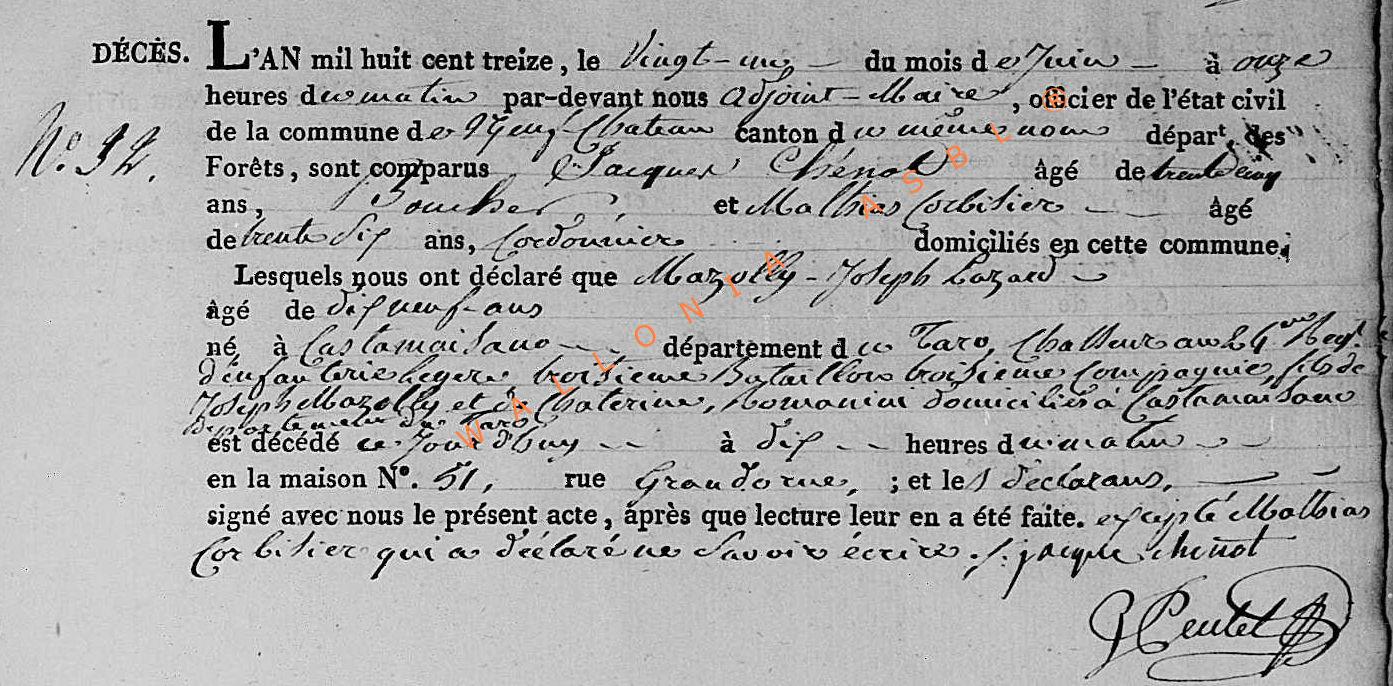 DÉCÈS. L'AN mil huit cent treize, le Vingt-un du mois de Juin à onze
heures du matin par-devant nous adjoint-Maire, officier de l'état civil
de la commune de Neufchateau canton du même nom départ. des
Nº 32. Forêts, sont comparus Jacques Chenot âgé de trente cinq
ans, Boucher, et Mathias Corbisier âgé
de trente six ans, Cordonnier domiciliés en cette commune.
Lesquels nous ont déclaré que Mazolly-Joseph Lazard
âgé de dix neuf-ans
né à Castamaisano département du Taro, Chasseur au 26eme Regt.
d'infanterie legere, troisieme Bataillon troisieme Compagnie, fils de
Joseph Mazolly et de Chaterine, Romanini domiciliés à Castamaisano
département du Taro
est décédé ce Jourd'huy à dix heures du matin
en la maison Nº. 51, rue Grandorue, ; et les déclarans,
signé avec nous le présent acte, après que lecture leur en a été faite. excepté Mathias
Corbisier qui a déclaré ne savoir écrire. jacque chenot
WALLONIA ASBL ©